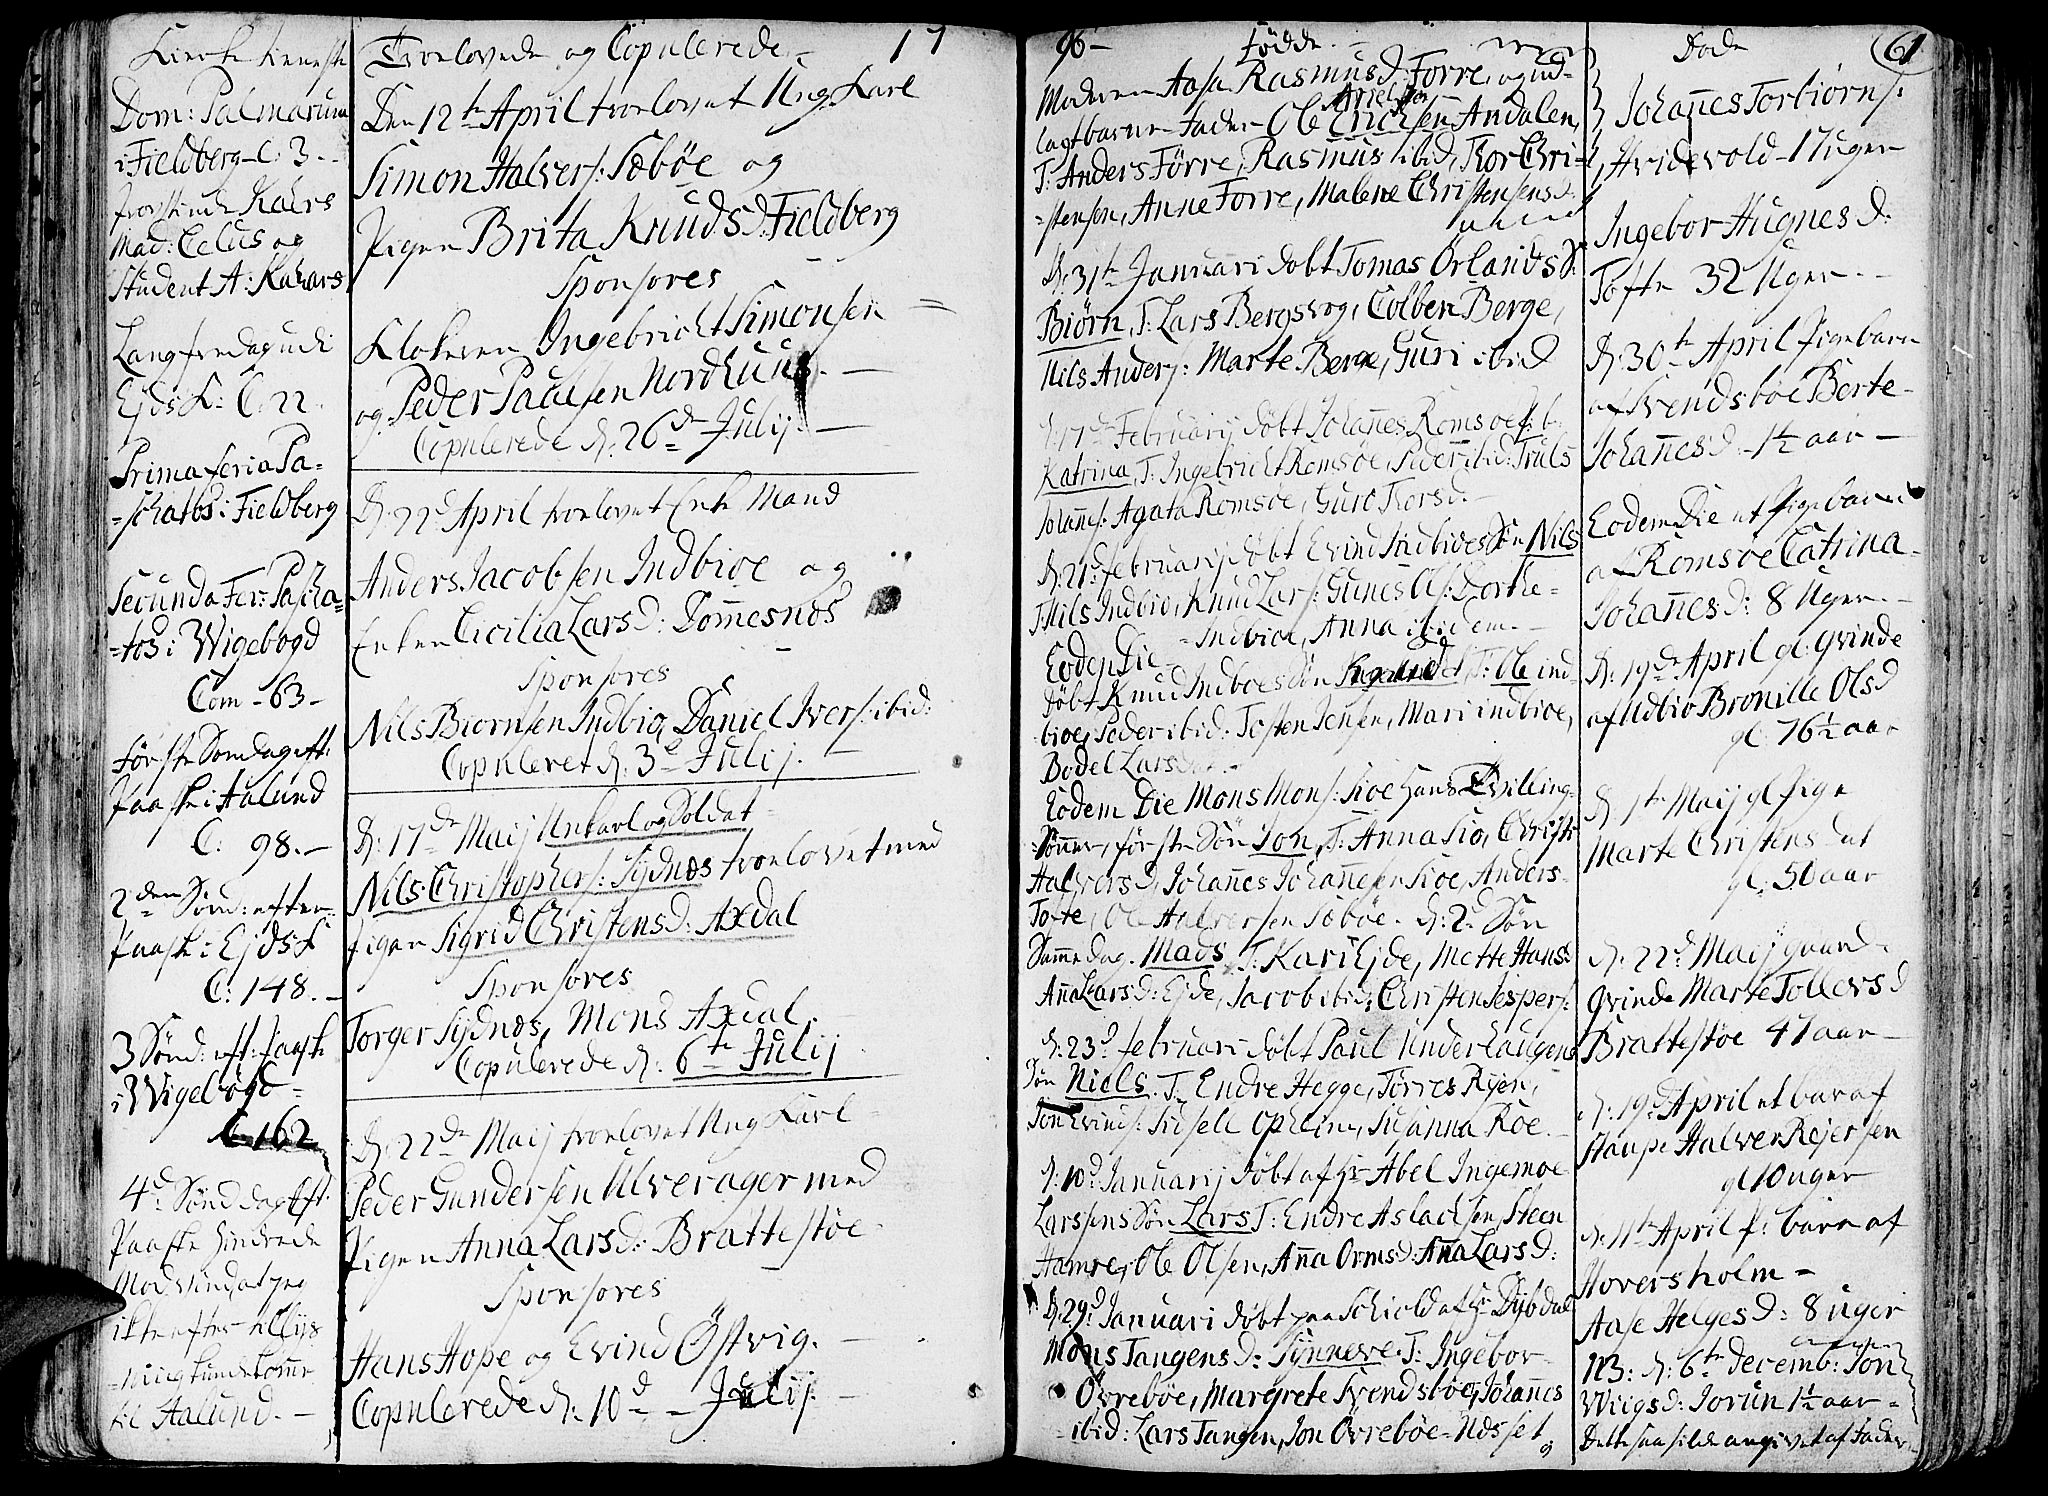 Kirke tieneste
Dom: Palmarum
i Fieldberg C: 3.
Mad: Celus og
Student A:
Langfredag udi
Ejds K: C. 22.
Prima feria Pa=
=schatos i Fieldberg
Secunda Fer: Pascha=
=tos i Wigebogd
Com - 63 -
Første Sondag eft.
Paaske i Aalund
C: 98. -
2den Sønd: efter
Paaske i Ejds K
C: 148. -
3 Sønd: eft: Paaske
i Wigebøgd -
C. 162
4d Sønddag Eft.
Paaske hindrede
Modvind at jeg
ikke efter
kunde komme
til Aalund. -
Troelovede og Copulerede - 17
Den 12te April troelovet Ung Karl
Simon Halvers: Sæbøe og
Pigen Brita Knuds D: Fieldberg
Sponsores
Klokeren Ingebricht Simonsen
og Peder Paalsen Nordhuus. -
Copulerede d: 26de Julij. -
D: 22d April troelovet Enke Mand
Anders Jacobsen Indbioe og
Enken Cicilia Lars D: Domesnæs
Sponsores
Nils Biørnsen Indbio, Daniel Ivers: ibid:
Copuleret d: 3de Julij. -
D: 17de Maij Unkarl og Soldat
Nils Christophers: Sydnæs troelovet med
Pigen Sigrid Christens D: Axdal
Sponsores
Torger Sydnæs, Mons Axdal.
Copulerede d: 6te Julij
D: 22de Maij troelovet Ung Karl
Peder Gundersen Ulverager med
Pigen Anna Lars D: Brattestøe
Sponsores
Hans Hope og Evind Østvig. -
Copulerede d: 10d - Julij. -
96 - Fødde. -
Moderen Aasa Rasmus D: Førre, og ud=
lagt barne Fader Ole Erichsen Andalen,
T: Anders Førre, Rasmus ibid, Tor Chri=
=stensen, Anne Førre, Malene Christensens D:
D: 31te Januari døbt Tomas Ørlands S:
Biørn, T: Lars Bergsvog, Colben Berge,
Nils Anders: Marte Berge, Guri ibid
D: 17de Februarij døbt Johannes Romsøe P: b:
Katrina, T: Ingebricht Romsøe, Peder ibid: Truls
Johanns: Agata Romsøe, Guro Tors D. -
D: 21de februarij døbt Evind Indbioes Søn Nils
T: Nils Indbio, Knud Lars: Gunes Ols: Dorthe
Indbioe, Anna ibidem. -
Eodem Die -
døbt Knud Indboes Søn T: Ole ind=
bioe, Peder ibid: Tosten Jensen, Mari indbioe,
Bodel Larsdat. -
Eodem Die Mons Mons: Sioe hans Tvilling-
Sønner, første Søn Jon, T: Anna Sio, Christi
Halvors D, Johannes Johannesen Sioe, Anders
Tofte, Ole Halversen Sæbøe. d: 2d Søn
Samme dag. Mads, T: Kari Ejde, Mette Hans D
Anna Lars D: Ejde, Jacob ibid, Christen Jespers:
D: 23d februari døbt Paul Underhaugens
Søn Niels. T. Endre Hegge, Tørres Rejen,
Jon Evinds: Sidsell Ophejm, Susanna Roe. -
D: 10d Januarij døbt af Hr Abel Ingemoe
Larssens Søn Lars T: Endre Aslachsen Steen
Hamre, Ole Olsen, Anna Orms D: Anna Lars D:
D: 29d Januari døbt paa Schiold af Hr Dybdal
Mons Tangens D: Synneve T: Ingebor
Øvrebøe, Margrete Svendsbøe, Johannes
ibid: Lars Tangen, Jon Øvrebøe - Nosset
Døde 61
Johannes Torbiørns:
Hvidevold - 17 uger
Ingebor Hugnes D:
Tofte 32 Uger. -
D: 30te April Pigebarn
af Svendsbøe Berte
Johannes D: - 1½ aar -
Eodem Die et Pigebarn
af Romsøe Catrina
Johannes D: 8 Uger. -
D: 19de April gl: Qvinde
af Udbio Bronille Ols D
gl: 76½ aar
D: 1te Maij gl Pige
Marte Christens dat
gl: 50 aar
D: 22d Maij gaard
Qvinde Marte Tollevs D
Brattestøe 47 aar -
D: 19d April et barn af
Staupe Halver Rejersen
gl 10 uger
D: 11te April P: barn af
Hoversholm -
Aase Helges D: 8 uger
N3: d: 6te Decemb: Jon
Wiigs D: Jorun 1½ aar -
Dette saa silde angivet af Fader